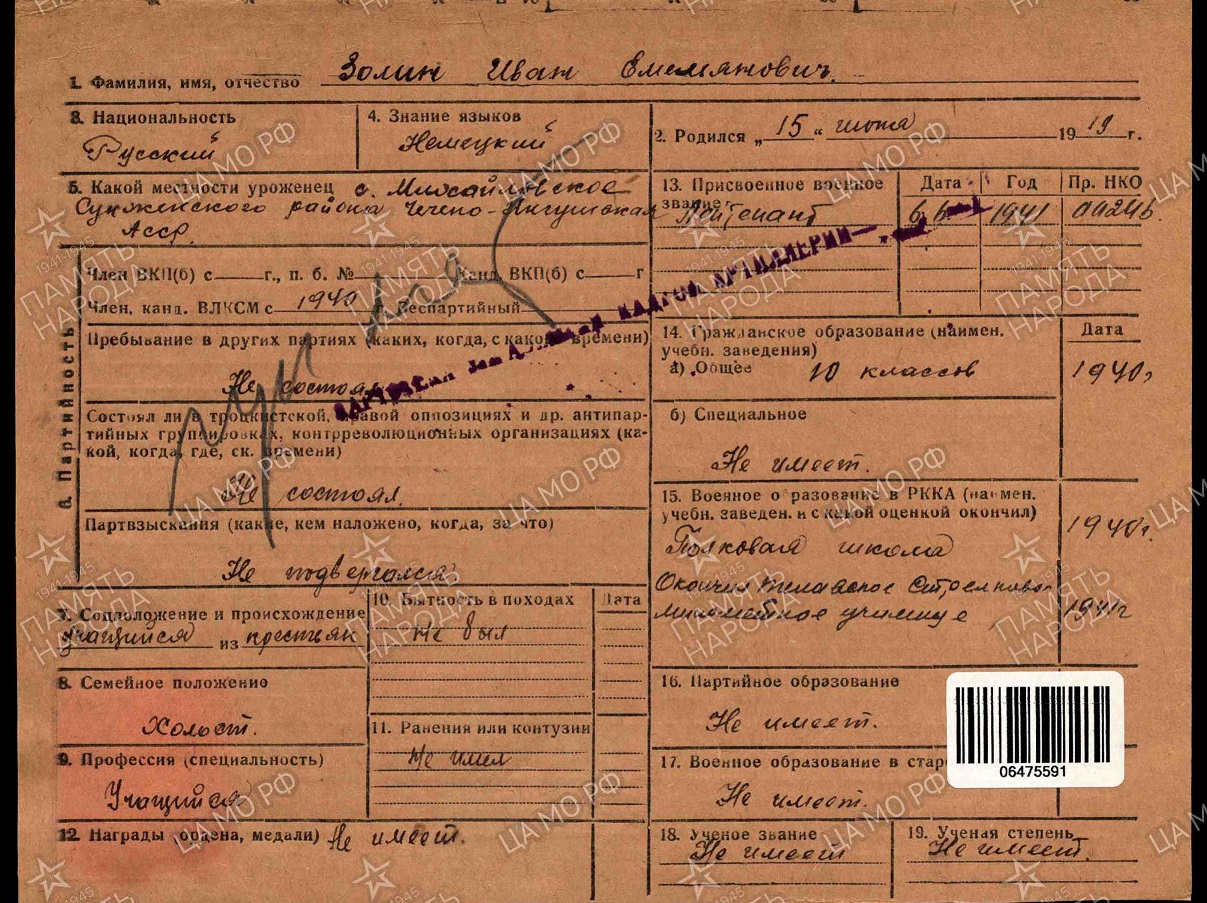 1. Фамилия, имя, отчество Золин Иван Емельянович.
3. Национальность
Русский
4. Знание языков
Немецкий
2. Родился „ 15 “ июня 1919 г.
5. Какой местности уроженец с. Михайловское
Сунженского района Чечено-Ингушская
Асср.
13. Присвоенное военное звание
Дата Год Пр. НКО
Лейтенант 1941
6. Партийность
Член ВКП(б) с г., п. б. № Канд. ВКП(б) с г
Член, канд. ВЛКСМ с 1940 г. Беспартийный
Пребывание в других партиях (каких, когда, с какого времени)
Не состоял
Состоял ли в троцкистской, правой оппозициях и др. антипар-
тийных группировках, контрреволюционных организациях (ка-
кой, когда, где, ск. времени)
Не состоял.
Партвзыскания (какие, кем наложено, когда, за что)
Не подвергался
КАДРОВ АРТИЛЛЕРИИ
14. Гражданское образование (наимен.
учебн. заведения)
Дата
а) Общее 10 классов 1940г
б) Специальное
Не имеет.
15. Военное образование в РККА (наимен.
учебн. заведен. и с какой оценкой окончил)
Полковая школа 1940г.
Окончил Телавское Стрелково
миномётное училище 1941г
7. Соцположение и происхождение
Учащийся из крестьян
10. Бытность в походах Дата
Не был
8. Семейное положение
Холост.
11. Ранения или контузии
Не имел
9. Профессия (специальность)
Учащийся
12. Награды (ордена, медали) Не имеет.
16. Партийное образование
Не имеет.
17. Военное образование в стар
Не имеет.
18. Ученое звание
Не имеет
19. Ученая степень
Не имеет.
06475591
ЦА МО РФ
ПАМЯТЬ
НАРОДА
1941-1945